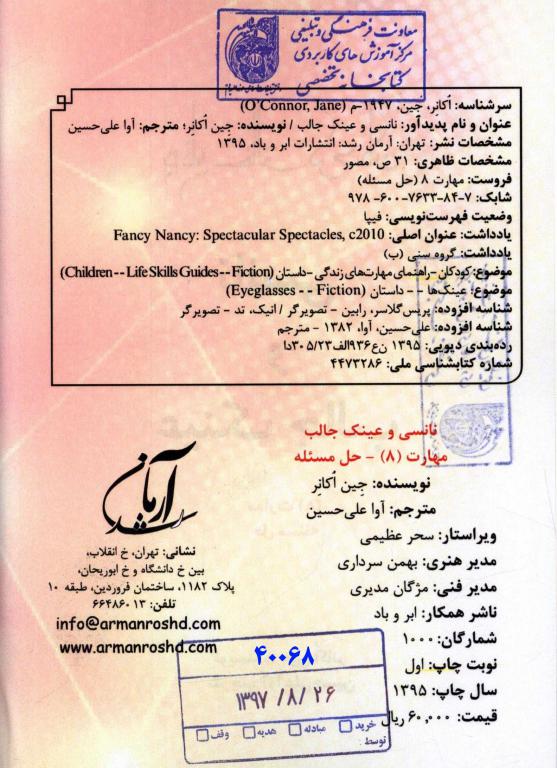 معاونت فرهنگی و تبلیغی
مرکز آموزش های کاربردی
کتابخانه تخصصی
سرشناسه: اُکانِر، جین، ۱۹۴۷-م (O'Connor, Jane)
عنوان و نام پدیدآور: نانسی و عینک جالب / نویسنده: جِین اُکانِر؛ مترجم: آوا علی‌حسین
مشخصات نشر: تهران: آرمان رشد: انتشارات ابر و باد، ۱۳۹۵
مشخصات ظاهری: ۳۱ ص، مصور
فروست: مهارت ۸ (حل مسئله)
شابک: ۷-۸۴-۷۶۳۳-۶۰۰-۹۷۸
وضعیت فهرست‌نویسی: فیپا
یادداشت: عنوان اصلی: Fancy Nancy: Spectacular Spectacles, c2010
یادداشت: گروه سنی (ب)
موضوع: کودکان -راهنمای مهارت‌های زندگی -داستان (Children -- Life Skills Guides -- Fiction)
موضوع: عینک‌ها -- داستان (Eyeglasses -- Fiction)
شناسه افزوده: پریس‌گلاسر، رابین - تصویرگر / انیک، تد - تصویرگر
شناسه افزوده: علی‌حسین، آوا، ۱۳۸۲ - مترجم
رده‌بندی دیویی: ۱۳۹۵ ن‌ع۹۳۶الف۳۰۵/۲۳دا
شماره کتابشناسی ملی: ۴۴۷۳۲۸۶
نانسی و عینک جالب
مهارت (۸) - حل مسئله
نویسنده: جِین اُکانِر
مترجم: آوا علی‌حسین
ویراستار: سحر عظیمی
مدیر هنری: بهمن سرداری
مدیر فنی: مژگان مدیری
ناشر همکار: ابر و باد
شمارگان: ۱۰۰۰
نوبت چاپ: اول
سال چاپ: ۱۳۹۵
قیمت: ۶۰,۰۰۰ ریال
آرمان رشد
نشانی: تهران، خ انقلاب،
بین خ دانشگاه و خ ابوریحان،
پلاک ۱۱۸۲، ساختمان فروردین، طبقه ۱۰
تلفن: ۶۶۴۸۶۰۱۳
info@armanroshd.com
www.armanroshd.com
۴۰۰۶۸
۱۳۹۷ /۸/ ۲۶
خرید مبادله هدیه وقف
توسط: